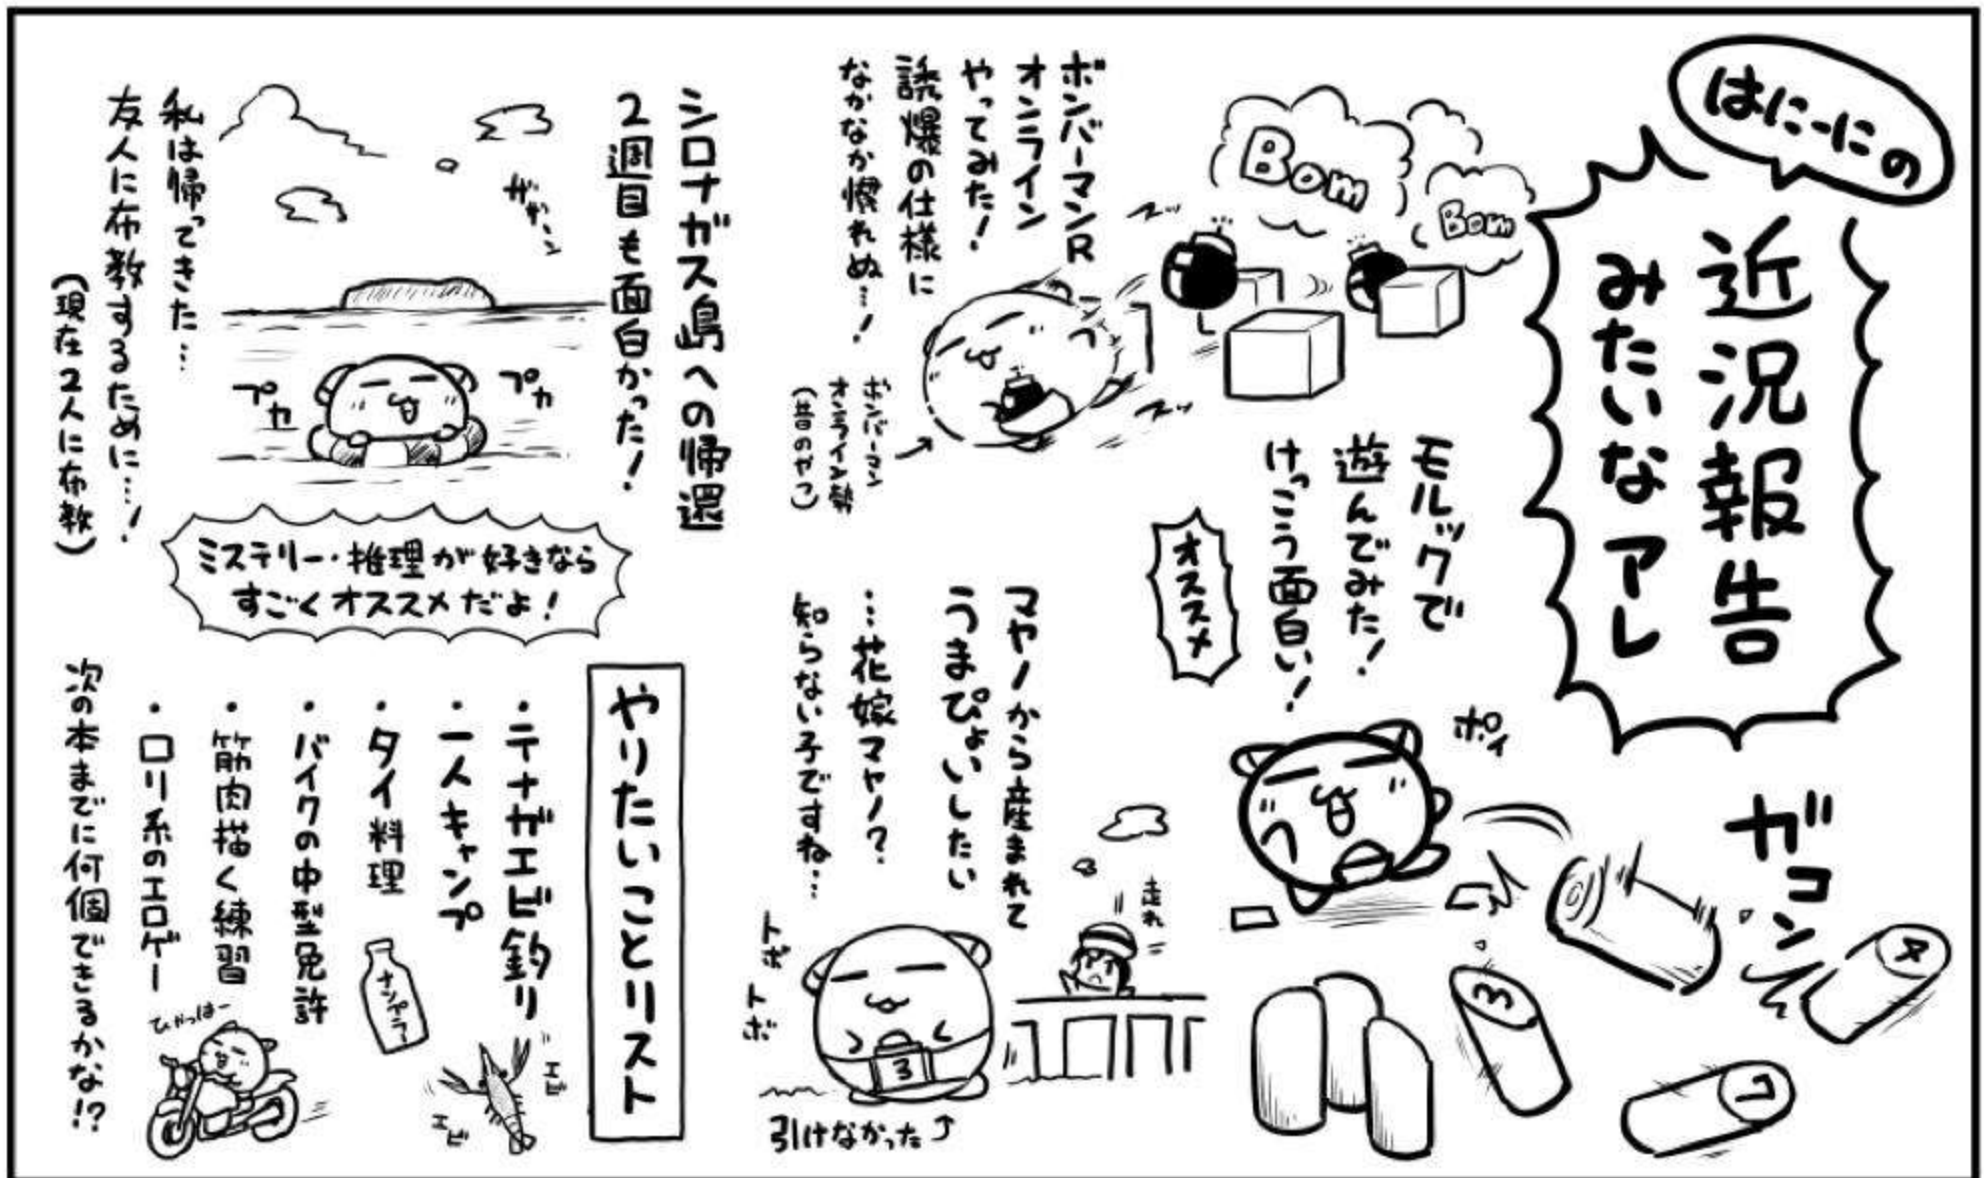 はにーにの
近況報告
みたいなアレ
Bom
Bom
ボンバーマンR
オンライン
やってみた!
誘爆の仕様に
なかなか慣れぬ…!
ボンバーマン
オンライン勢
(昔のやつ)
モルックで
遊んでみた!
けっこう面白い!
オススメ
ポイ
ガコン
3
4
1
マヤノから産まれて
うまぴょいしたい
…花嫁マヤノ?
知らない子ですね…
走れ
トボ
トボ
3
引けなかった
シロナガス島への帰還
2週目も面白かった!
ザザーン
プカ
プカ
私は帰ってきた…
友人に布教するために…!
(現在2人に布教)
ミステリー・推理が好きなら
すごくオススメだよ!
やりたいことリスト
・テナガエビ釣り
・一人キャンプ
・タイ料理
・バイクの中型免許
・筋肉描く練習
・ロリ系のエロゲー
ナンプラー
エビ
エビ
ひゃっはー
次の本までに何個できるかな!?